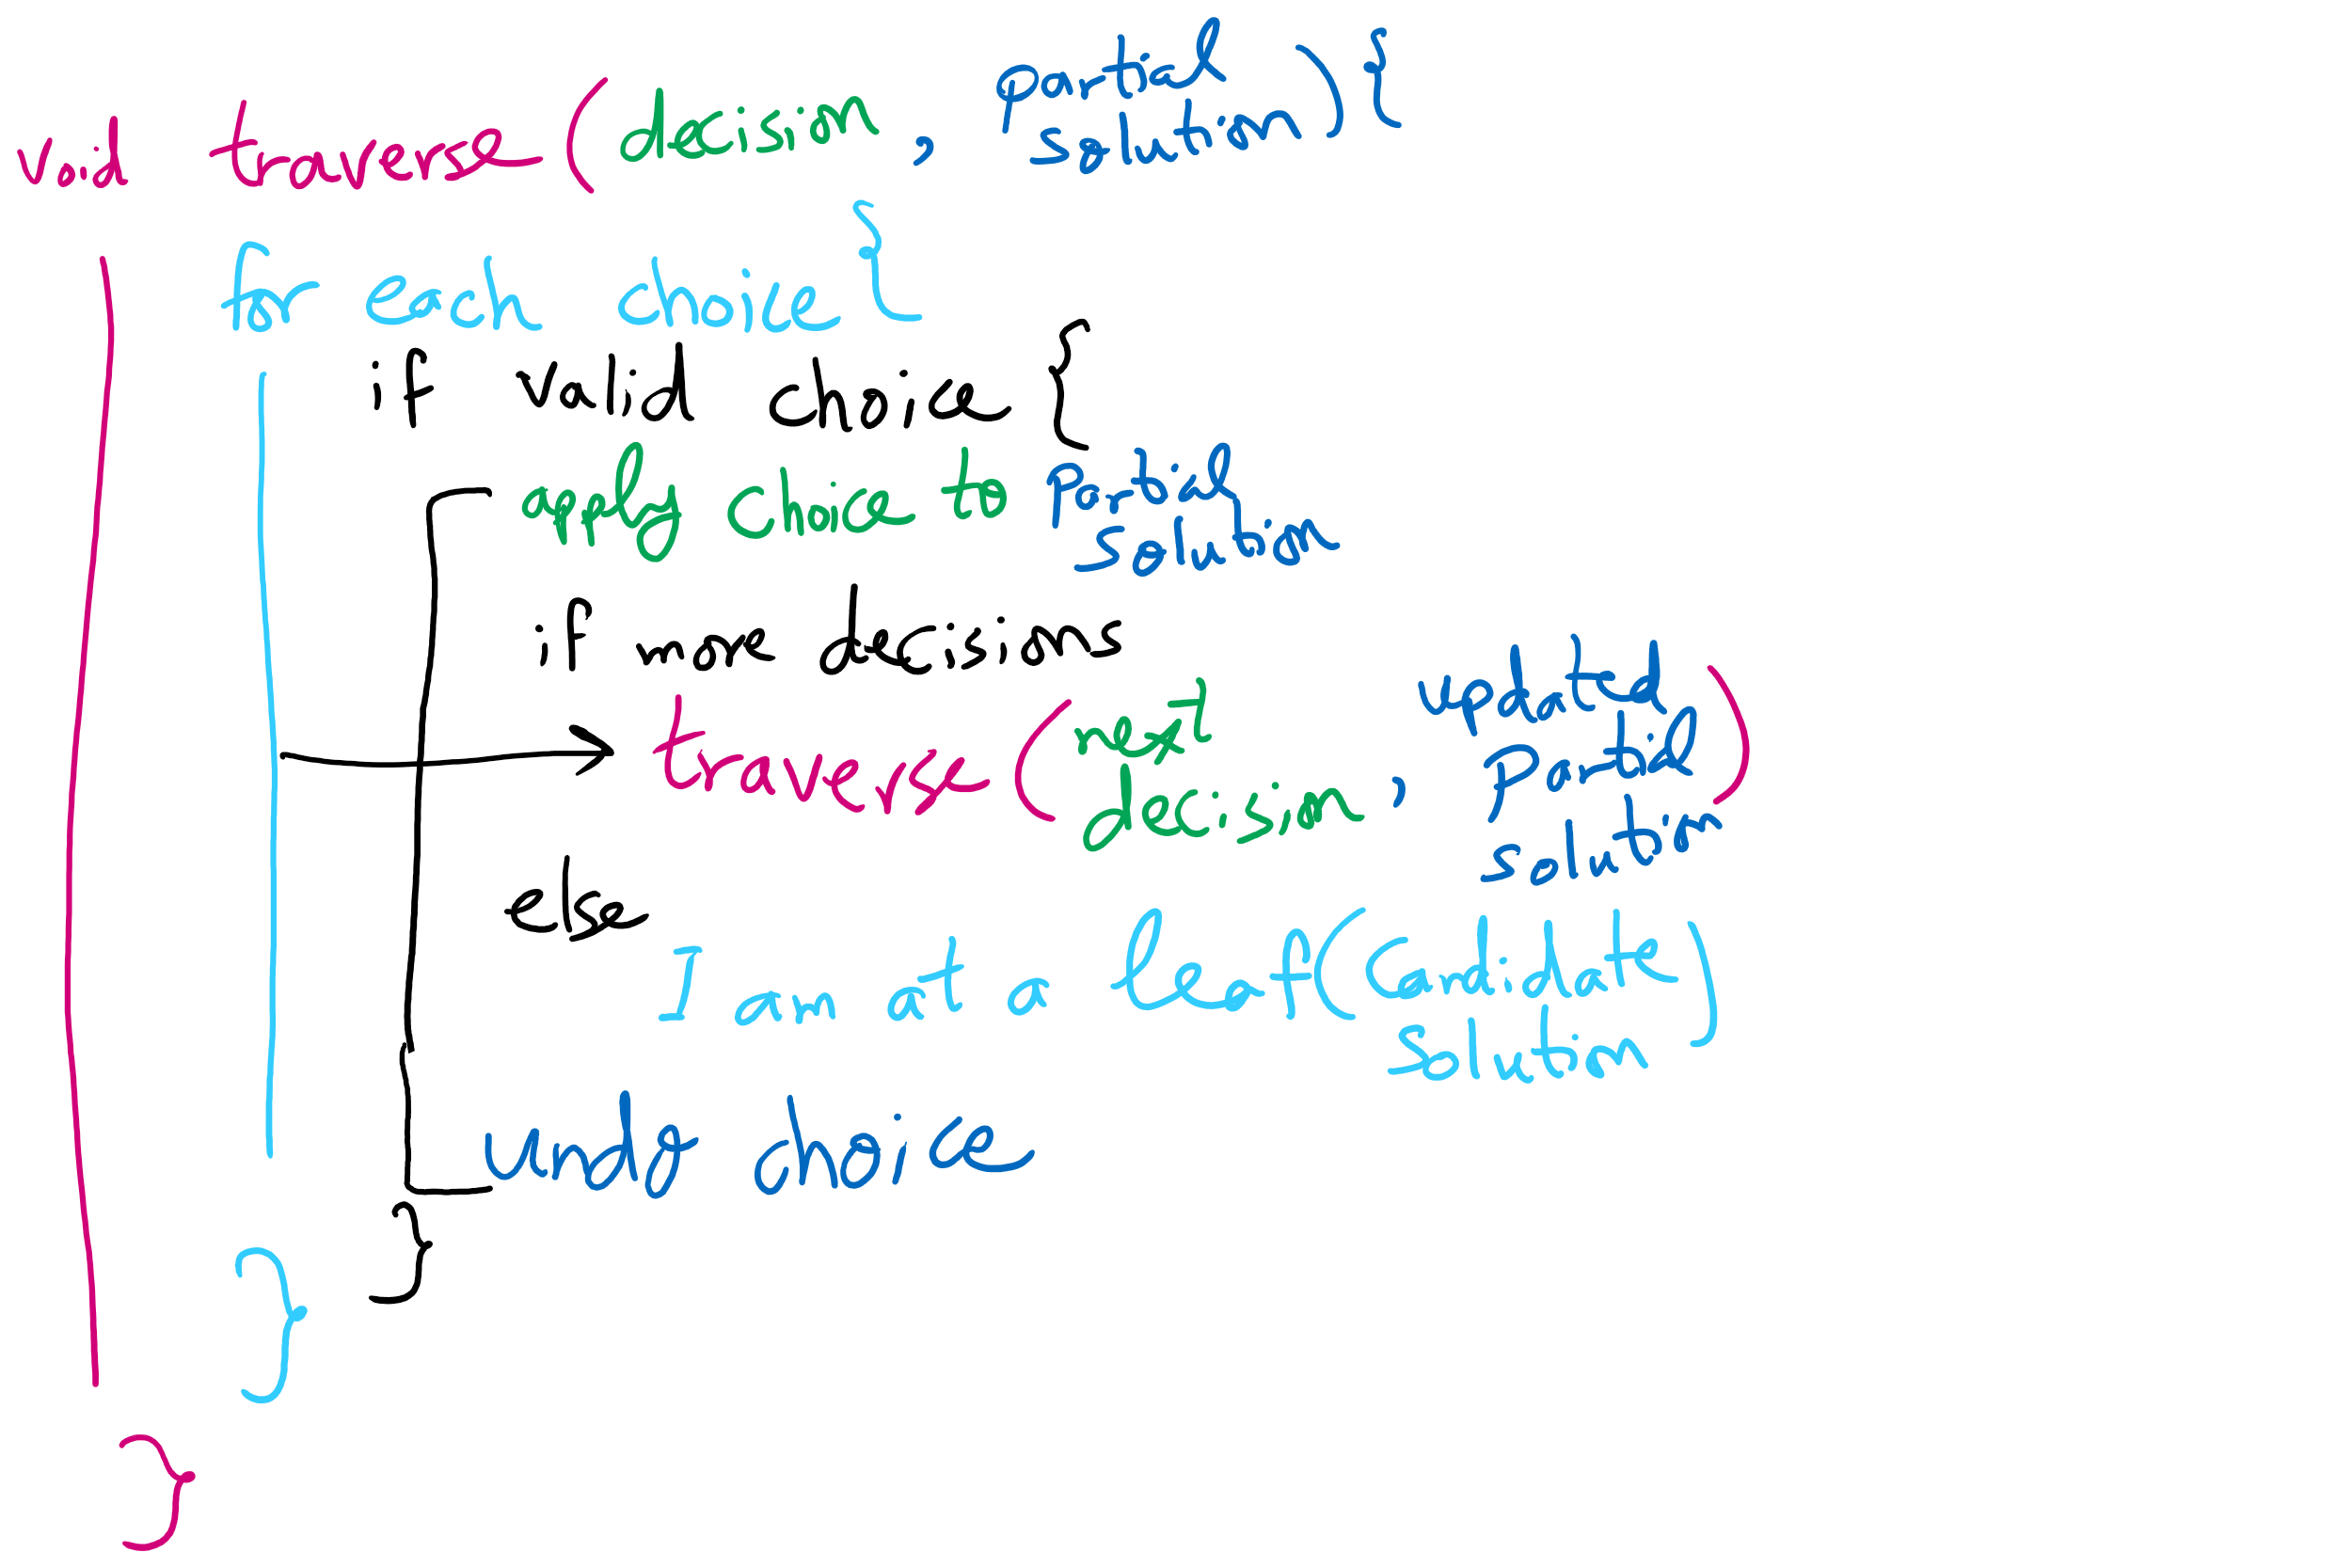 void traverse(decision, partial solution){
for each choice{
if valid choice{
apply choice to partial solution
if more decisions
traverse(next decision, updated partial solution)
else
I am at a leaf(candidate solution)
undo choice
}
}
}